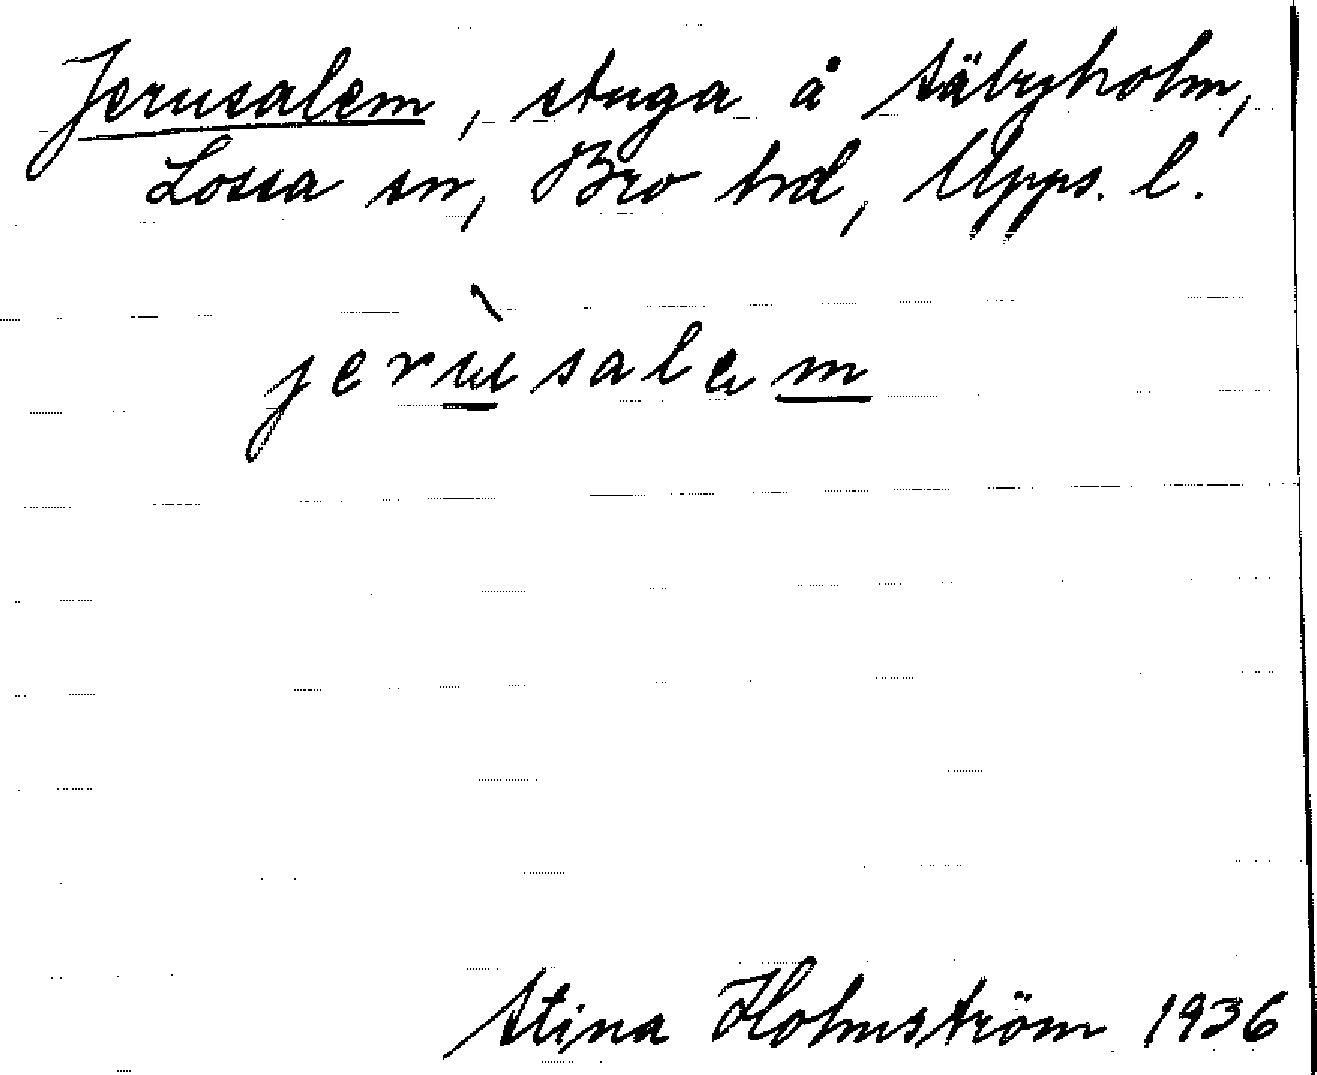 Jerusalem, stuga å Säbyholm,
Lossa sn, Bro hrd, Upps. l.
jerùsalem
Stina Holmström 1936